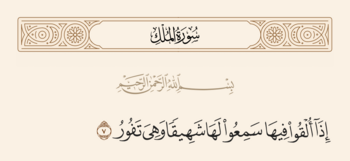 سُورَةُ الْمُلْكِ
بِسْمِ اللَّهِ الرَّحْمَٰنِ الرَّحِيمِ
إِذَآ أُلْقُوا۟ فِيهَا سَمِعُوا۟ لَهَا شَهِيقًا وَهِىَ تَفُورُ ٧